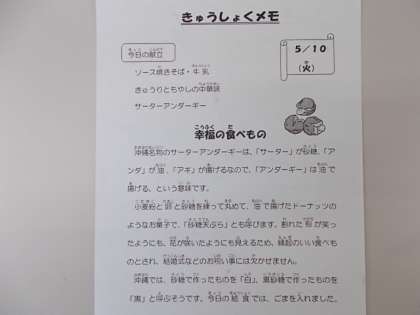 きゅうしょくメモ
5/10
(火)
今日の献立
ソース焼きそば・牛乳
きゅうりともやしの中華味
サーターアンダーギー
幸福の食べもの
沖縄名物のサーターアンダーギーは、「サーター」が砂糖、「ア
ンダ」が油、「アギ」が揚げるなので、「アンダーギー」は油で
揚げる、という意味です。
小麦粉と卵と砂糖を練って丸めて、油で揚げたドーナッツの
ようなお菓子で、「砂糖天ぷら」とも呼びます。割れた形が笑っ
たようにも、花が咲いたようにも見えるため、縁起のいい食べも
のとされ、結婚式などのお祝い事には欠かせません。
沖縄では、砂糖で作ったものを「白」、黒砂糖で作ったものを
「黒」と呼ぶそうです。今日の給食では、ごまを入れました。